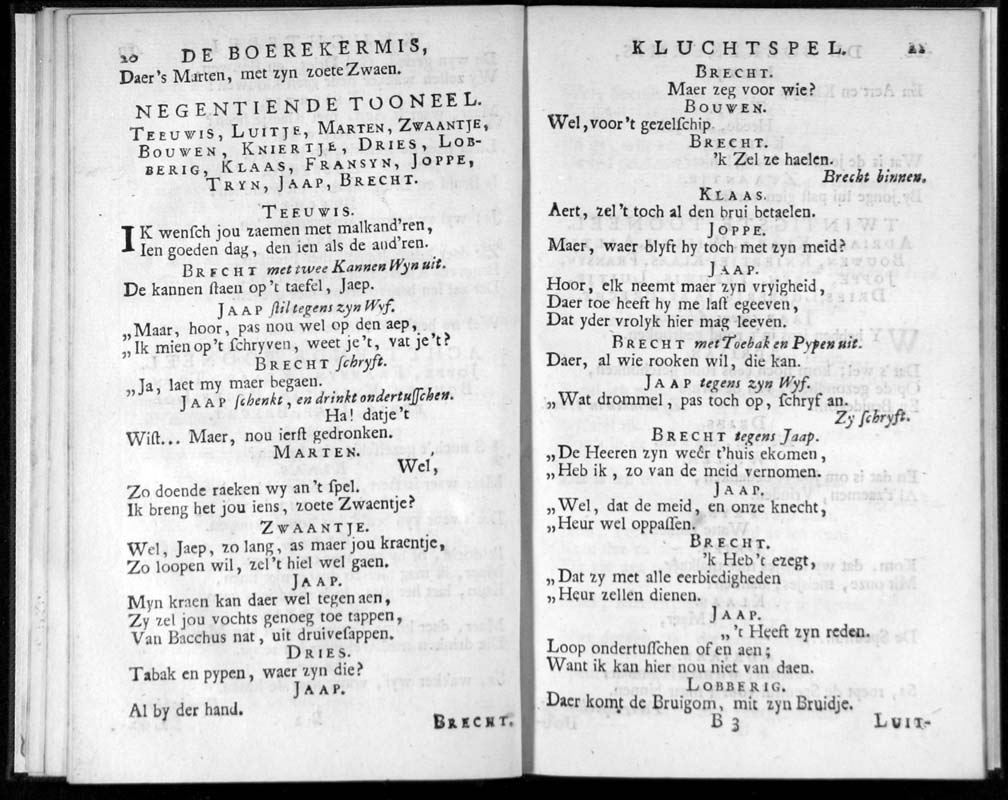 20 DE BOEREKERMIS,
Daer's Marten, met zyn zoete Zwaen.
NEGENTIENDE TOONEEL.
TEEUWIS, LUITJE, MARTEN, ZWAANTJE,
BOUWEN, KNIERTJE, DRIES, LOB-
BERIG, KLAAS, FRANSYN, JOPPE,
TRYN, JAAP, BRECHT.
TEEUWIS.
IK wensch jou zaemen met malkand'ren,
Ien goeden dag, den ien als de and'ren.
BRECHT met twee Kannen Wyn uit.
De kannen staen op 't taefel, Jaep.
JAAP stil tegens zyn Wyf.
„Maar, hoor, pas nou wel op den aep,
„Ik mien op't schryven, weet je't, vat je't?
BRECHT schryft.
„Ja, laet my maer begaen.
JAAP schenkt, en drinkt ondertusschen.
Ha! datje't
Wist... Maer, nou ierst gedronken.
MARTEN.
Wel,
Zo doende raeken wy an't spel.
Ik breng het jou iens, zoete Zwaentje?
ZWAANTJE.
Wel, Jaep, zo lang, as maer jou kraentje,
Zo loopen wil, zel't hiel wel gaen.
JAAP.
Myn kraen kan daer wel tegen aen,
Zy zel jou vochts genoeg toe tappen,
Van Bacchus nat, uit druivesappen.
DRIES.
Tabak en pypen, waer zyn die?
JAAP.
Al by der hand.
BRECHT.
KLUCHTSPEL. 21
BRECHT.
Maer zeg voor wie?
BOUWEN.
Wel, voor 't gezelschip
BRECHT.
'k Zel ze haelen.
Brecht binnen.
KLAAS.
Aert, zel't toch al den brui betaelen.
JOPPE.
Maer, waer blyft hy toch met zyn meid?
JAAP.
Hoor, elk neemt maer zyn vryigheid,
Daer toe heeft hy me last egeeven,
Dat yder vrolyk hier mag leeven.
BRECHT met Toebak en Pypen uit.
Daer, al wie rooken wil, die kan.
JAAP tegens zyn Wyf.
„Wat drommel, pas toch op, schryf an.
Zy schryft.
BRECHT tegens Jaap.
„De Heeren zyn weêr t'huis ekomen,
„Heb ik, zo van de meid vernomen.
JAAP.
„Wel, dat de meid, en onze knecht,
„Heur wel oppassen.
BRECHT.
'k Heb't ezegt,
„Dat zy met alle eerbiedigheden
„Heur zellen dienen.
JAAP.
„'t Heeft zyn reden.
Loop ondertusschen of en aen;
Want ik kan hier nou niet van daen.
LOBBERIG.
Daer komt de Bruigom, mit zyn Bruidje.
B 3 LUIT-